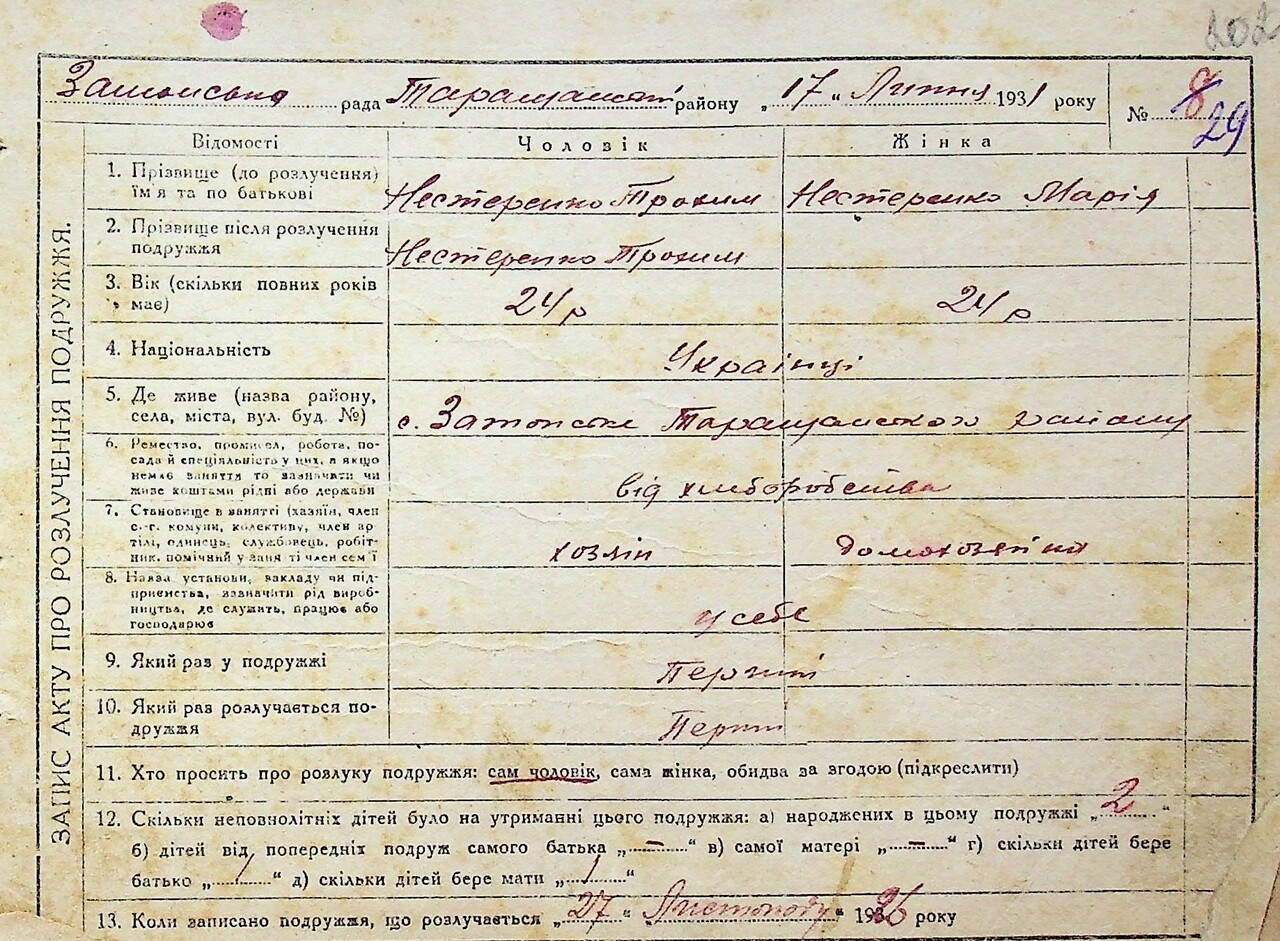 202
Затонська рада Таращанськ. району „17" Липня 1931 року № 8
29
ЗАПИС АКТУ ПРО РОЗЛУЧЕННЯ ПОДРУЖЖЯ.
Відомості Чоловік Жінка
1. Прізвище (до розлучення) ім'я та по батькові Нестеренко Трохим Нестеренко Марія
2. Прізвище після розлучення подружжя Нестеренко Трохим
3. Вік (скільки повних років має) 24 р 24 р
4. Національність Українці
5. Де живе (назва району, села, міста, вул. буд. №) с. Затонське Таращанського району
6. Ремество, промисел, робота, посада й спеціяльність у них, а якщо немає заняття то зазначити чи живе коштами рідні або держави від хліборобства
7. Становище в занятті (хазяїн, член с.-г. комуни, колективу, член артілі, одинець, службовець, робітник, помічний у занятті член сем'ї хозяін домохозяйка
8. Назва установи, закладу чи підприємства, зазначити рід виробництва, де служать, працює або господарює у себе
9. Який раз у подружжі Перший
10. Який раз розлучається подружжя Перший
11. Хто просить про розлуку подружжя: сам чоловік, сама жінка, обидва за згодою (підкреслити)
12. Скільки неповнолітніх дітей було на утриманні цього подружжя: а) народжених в цьому подружжі „2"
б) дітей від попередніх подруж самого батька „–" в) самої матері „–" г) скільки дітей бере
батько „1" д) скільки дітей бере мати „1"
13. Коли записано подружжя, що розлучається „27" „Листопаду" 1926 року